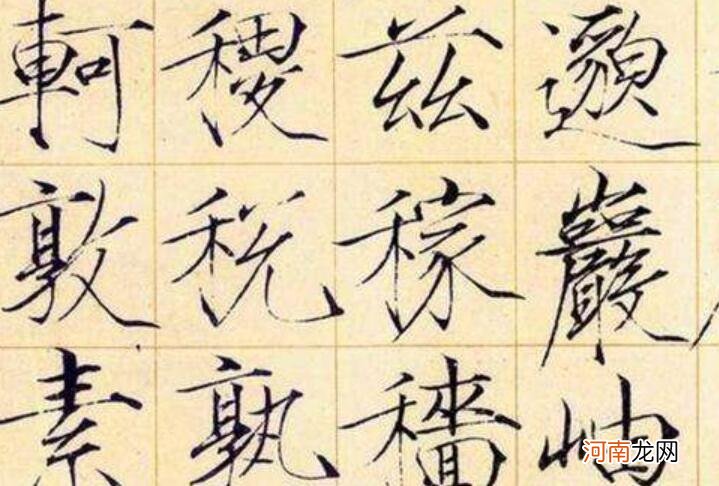 邈巖岫
茲稼穡
稷稅熟
軻敦素
河南龙网